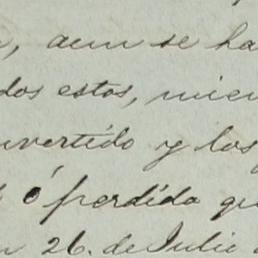 , aun se ha
dos estos, mien
nvertido y los
ó perdida qu
n 26. de Julio